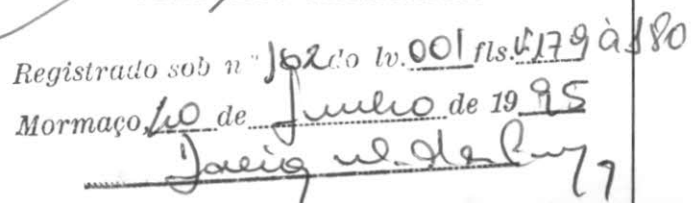 Registrado sob nº 162 do lv. 001 fls. V179 à 180
Mormaço, 10 de Junho de 1995